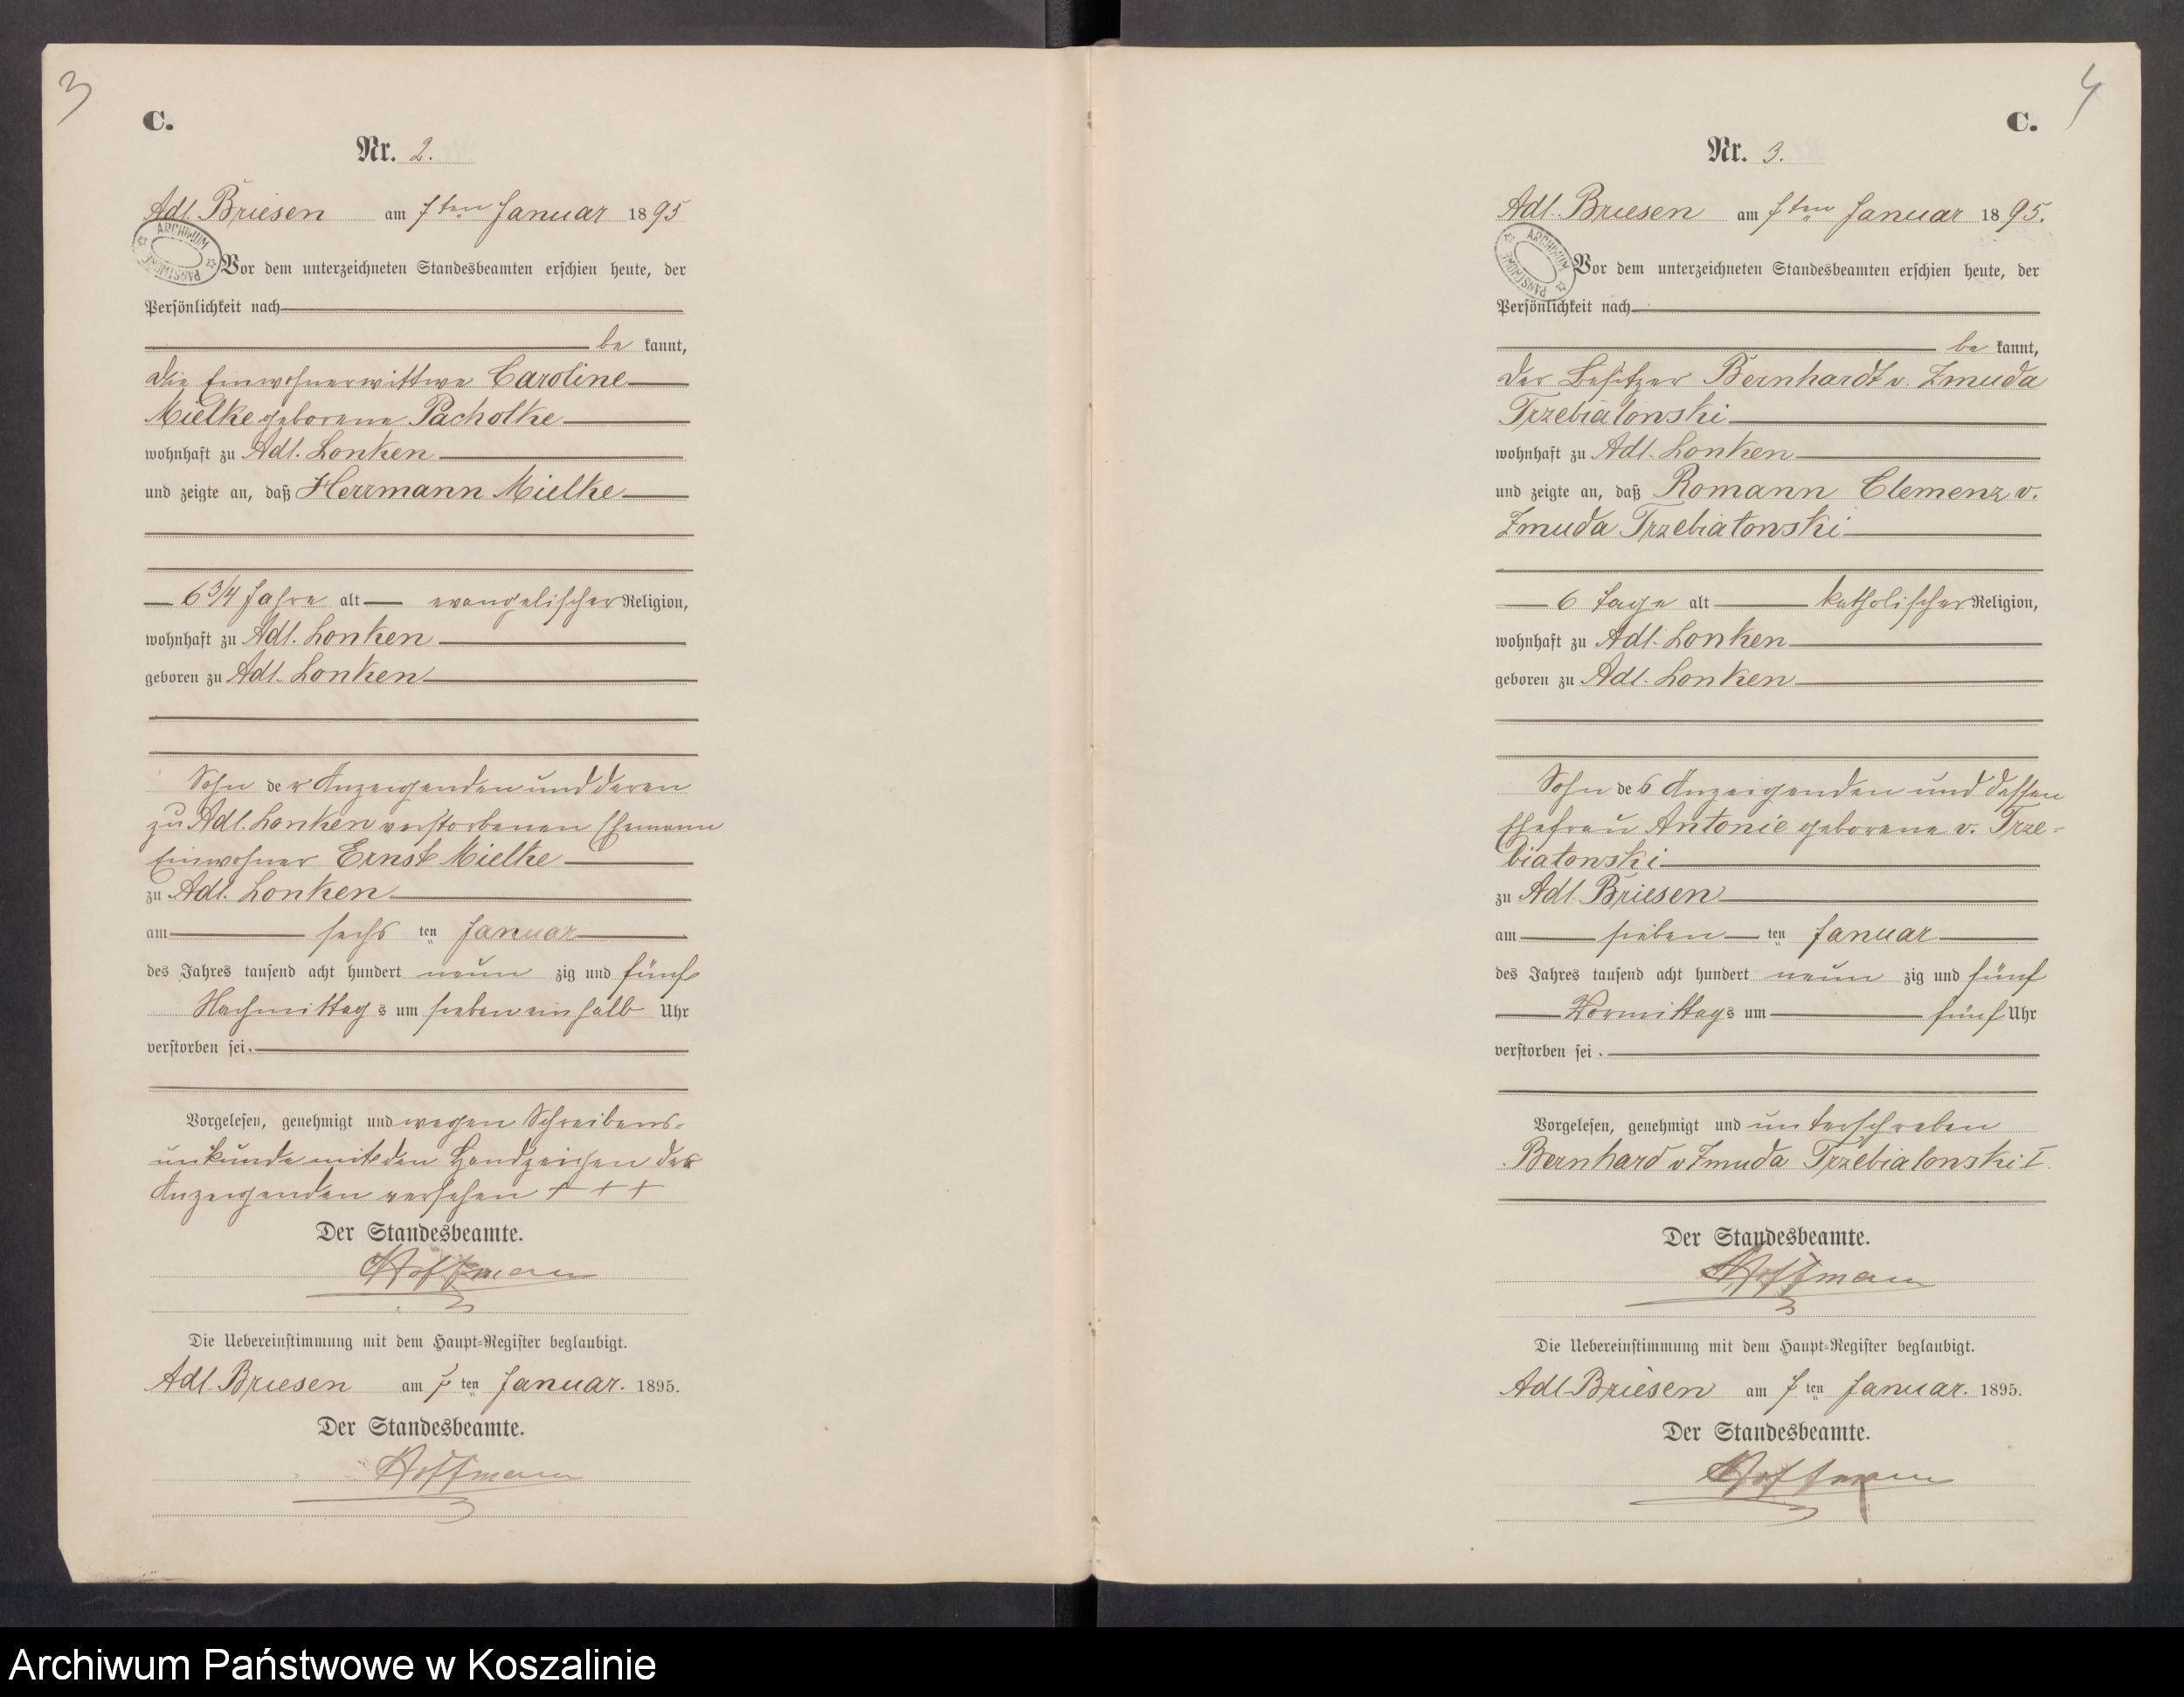 3
C.
Nr. 2.
Adl. Briesen am 7ten Januar 1895
ARCHIWUM PAŃSTWOWE
Vor dem unterzeichneten Standesbeamten erschien heute, der
Persönlichkeit nach
be kannt,
die Einwohnerwittwe Caroline
Mielke geborene Pacholke
wohnhaft zu Adl. Lonken
und zeigte an, daß Herrmann Mielke
6 3/4 Jahre alt evangelischer Religion,
wohnhaft zu Adl. Lonken
geboren zu Adl. Lonken
Sohn der Anzeigenden und deren
zu Adl. Lonken verstorbenen Ehemann
Einwohner Ernst Mielke
zu Adl. Lonken
am sechs ten Januar
des Jahres tausend acht hundert neun zig und fünf
Nachmittag s um sieben ein halb Uhr
verstorben sei.
Vorgelesen, genehmigt und wegen Schreibens-
unkunde mit den Handzeichen der
Anzeigenden versehen + + +
Der Standesbeamte.
Hoffmann
Die Uebereinstimmung mit dem Haupt-Register beglaubigt.
Adl. Briesen am 7 ten Januar. 1895.
Der Standesbeamte.
Hoffmann
4
C.
Nr. 3.
Adl. Briesen am 7ten Januar 1895.
ARCHIWUM PAŃSTWOWE
Vor dem unterzeichneten Standesbeamten erschien heute, der
Persönlichkeit nach
be kannt,
der Besitzer Bernhardt v. Zmuda
Trzebiatonski
wohnhaft zu Adl. Lonken
und zeigte an, daß Romann Clemenz v.
Zmuda Trzebiatonski
6 Tage alt katholischer Religion,
wohnhaft zu Adl. Lonken
geboren zu Adl. Lonken
Sohn des Anzeigenden und dessen
Ehefrau Antonie geborene v. Trze-
biatonski
zu Adl. Briesen
am sieben ten Januar
des Jahres tausend acht hundert neun zig und fünf
Vormittags um fünf Uhr
verstorben sei.
Vorgelesen, genehmigt und unterschreben
Bernhard v Zmuda Trzebiatonski I.
Der Standesbeamte.
Hoffmann
Die Uebereinstimmung mit dem Haupt-Register beglaubigt.
Adl. Briesen am 7 ten Januar. 1895.
Der Standesbeamte.
Hoffmann
Archiwum Państwowe w Koszalinie